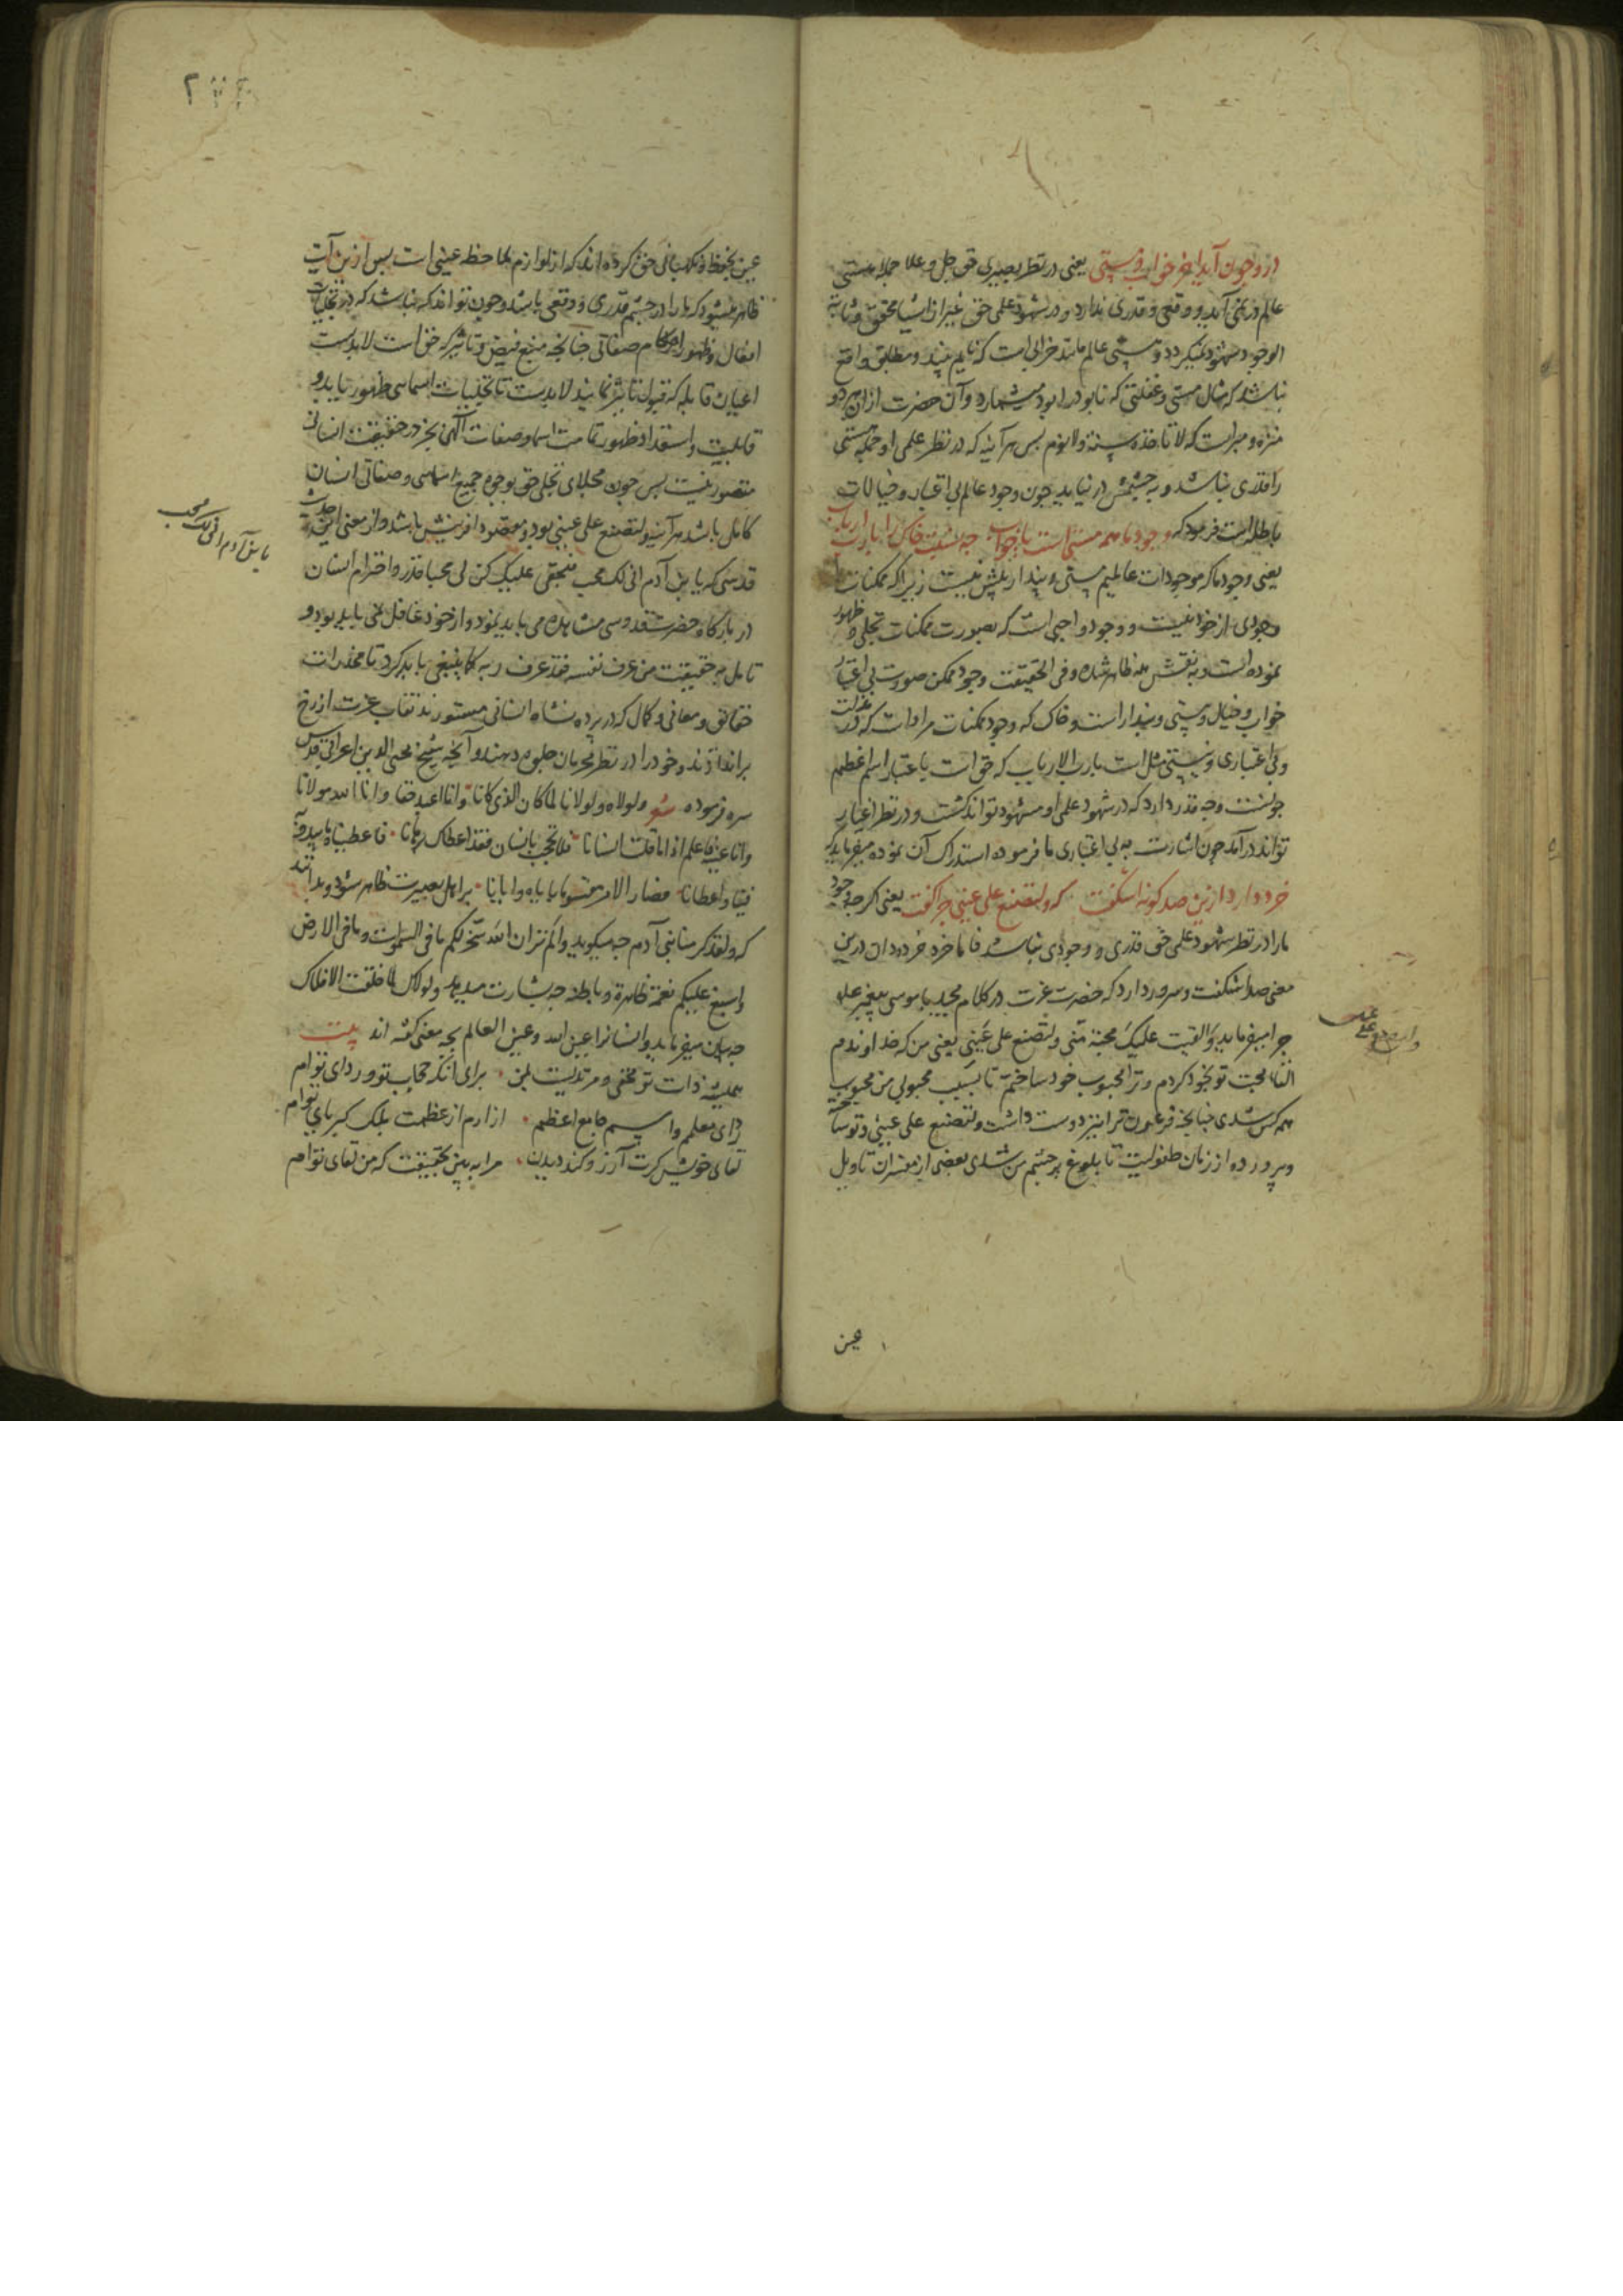 درو چون آید اخر خواب و مستی یعنی در نظر بصیری حق جل و علا جمله هستی
عالم در نمی آید و وقعی و قدری ندارد و در شهود علمی حق غیر از اشیا محقق
الوجود مشهود نمیگردد و هستی عالم مانند خوابی است که نایم بیند و مطابق واقع
نباشد که مثال مستی و غفلتی که نابود را بود میشمارد و آن حضرت ازان هر دو
منزه و مبراست که لا تاخذه سنة ولا نوم پس هر آینه که در نظر علمی او جمله هستی
را قدری نباشد و به چشمش در نیاید چون وجود عالم بی اعتبار و خیالات
باطله است فرمود که وجود ما همه مستی است یا خواب چه نسبت خاک را با رب ارباب
یعنی وجود ما که موجودات عالمیم مستی و پندار بیش نیست زیرا که ممکنات را
وجودی از خود نیست و وجود واجبی است که بصورت ممکنات تجلی و ظهور
نموده است و به نقش همه ظاهر شده و فی الحقیقت وجود ممکن صورت بی اعتبار
خواب و خیال و مستی و پندار است و خاک که وجود ممکنات مراد است که در مذلت
و بی اعتباری و پستی مثل است با رب الارباب که حق است باعتبار اسم اعظم
چه نسبت و چه قدر دارد که در شهود علمی او مشهود تواند گشت و در نظر اعتبار
تواند درآمد چون اشارت به بی اعتباری ما فرموده استدراک آن نموده میفرماید که
خرد دارد ازین صد گونه اشگفت که ولتصنع علی عینی چرا گفت یعنی اگر چه وجود
ما را در نظر شهود علمی حق قدری و وجودی نباشد فاما خرد خرده دان درین
معنی صد اشگفت و سرور دارد که حضرت عزت در کلام مجید با موسی پیغمبر علم
چرا میفرماید و القیت علیک محبة منی ولتصنع علی عینی یعنی من که خداوندم
القا محبت تو بخود کردم و ترا محبوب خود ساختم تا بسبب محبوبی من محبوب
همه کس شدی چنانچه فرعون ترا نیز دوست داشت ولتصنع علی عینی و تو ساخته
و پرورده از زمان طفولیت تا بلوغ بر چشم من شدی بعضی از مفسران تاویل
ولتصنع علی عینی
عین
۲
عین بحفظ و نگهبانی حق کرده اند که از لوازم ملاحظه عینی است پس ازین آیت
ظاهر میشود که ما را در چشم قدری و وقعی باشد و چون تواند که نباشد که در تجلیات
افعال و ظهور احکام صفاتی چنانچه منبع فیض و تاثیر که حق است لابدست
اعیان قابله که قبول تاثیر نمایند لابدست تا تجلیات اسمائی ظهور یابد و
قابلیت و استعداد ظهور تمامت اسما و صفات الهی بجز در حقیقت انسانی
متصور نیست پس چون مجلای تجلی حق بوجوه جمیع اسمائی و صفاتی انسان
کامل باشد هر آینه ولتصنع علی عینی بود و مقصود آفرینش باشد و از معنی این حدیث
قدسی که یا بن آدم انی لک محب فبحقی علیک کن لی محبا قدر و احترام انسان
در بارگاه حضرت قدوسی مشاهده می باید نمود و از خود غافل نمی باید بود و
تامل به حقیقت من عرف نفسه فقد عرف ربه کما ینبغی باید کرد تا مخدرات
حقایق و معانی و کمال که در پرده نشاه انسانی مستورند نقاب عزت از رخ
براندازند و خود را در نظر محرمان جلوه دهند و آنچه شیخ محیی الدین اعرابی قدس
سره فرموده شعر ولولاه ولولانا لما کان الذی کانا وانا اعبد حقا وانا الله مولانا
وانا عینه فاعلم اذا ما قلت انسانا فلا تحجب بانسان فقد اعطاک برهانا فاعطیناه ما یبدو به
فینا واعطانا فصار الامر مقسوما بایاه وایانا بر اهل بصیرت ظاهر شود و بدانند
که ولقد کرمنا بنی آدم چه میگوید و الم تر ان الله سخر لکم ما فی السموات وما فی الارض
واسبغ علیکم نعمه ظاهرة وباطنة چه بشارت میدهد و لولاک لما خلقت الافلاک
چه بیان میفرماید و انسان را عین الله و عین العالم بچه معنی گفته اند بیت
همیشه ذات تو مخفی و مرتدیست بمن برای آنکه حجاب تو و ردای توام
ردای معلم و اسم جامع اعظم از آرم از عظمت بلک کبریای توام
لقای خویش گرت آرزو کند دیدن مرا به بین بحقیقت که من لقای توام
یا بن آدم انی لک محب